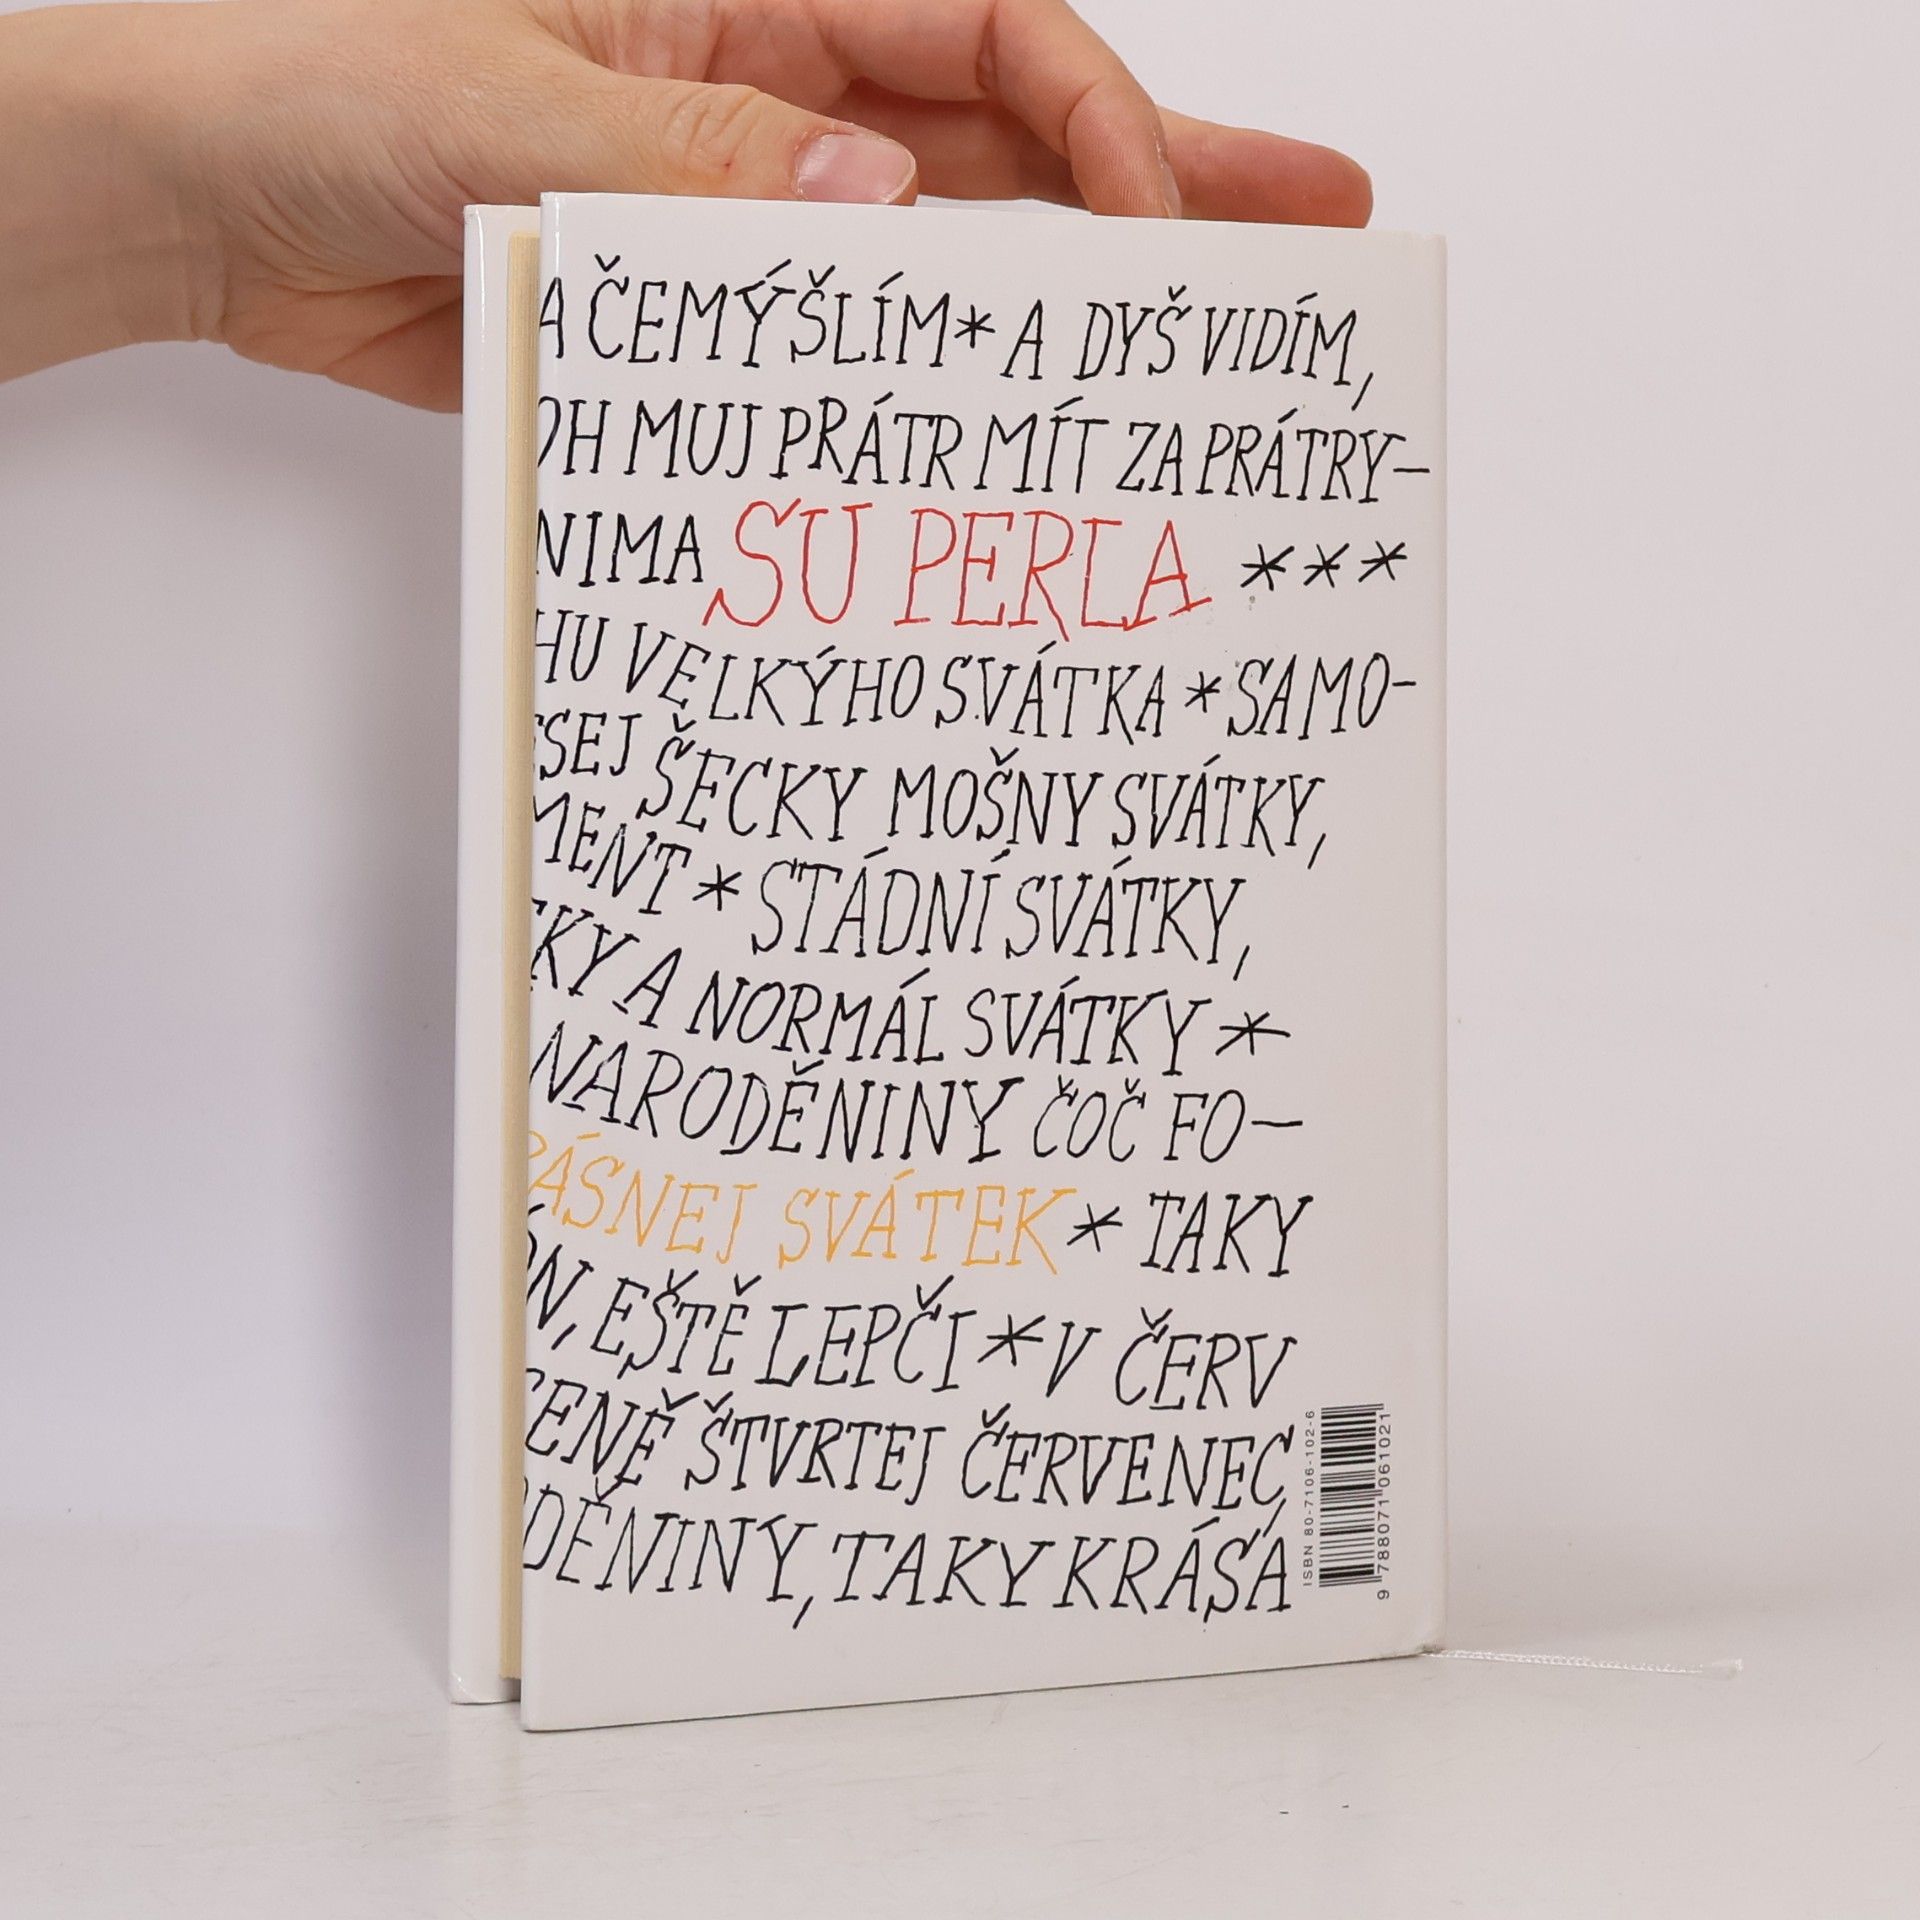 A ČEMÝŠLÍM * A DYŠ VIDÍM,
OH MUJ PRÁTR MÍT ZA PRÁTRY-
NIMA SU PERLA ***
HU VELKÝHO SVÁTKA * SAMO-
SEJ ŠECKY MOŠNY SVÁTKY,
MENT * STÁDNÍ SVÁTKY,
KY A NORMÁL SVÁTKY *
NARODĚNINY ČOČ FO-
ÁSNEJ SVÁTEK * TAKY
N, EŠTĚ LEPČI * V ČERV
ENĚ ŠTVRTEJ ČERVENEC,
DĚNINY, TAKY KRÁSÁ
ISBN 80-7106-102-6
9 788071 061021